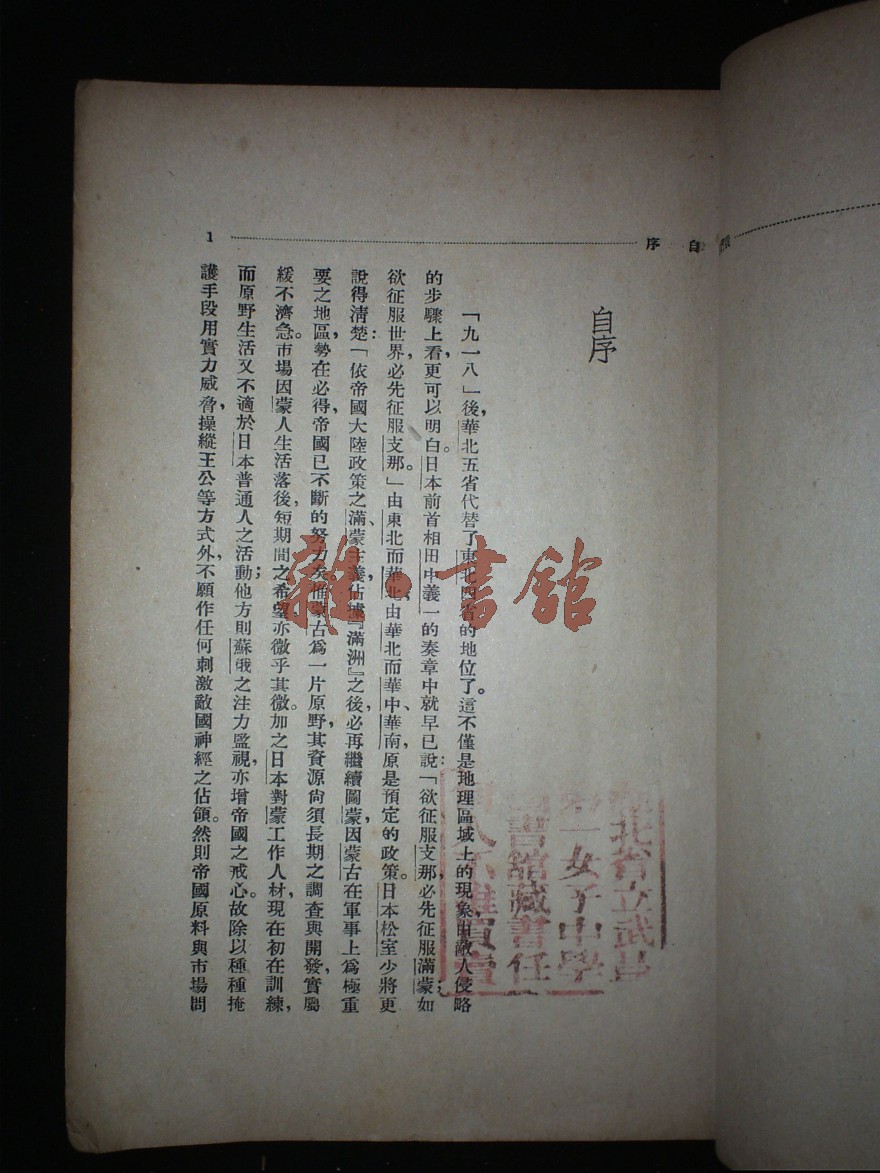 自序
1
自序
「九一八」後，華北五省代替了東北四省的地位了。這不僅是地理區域上的現象，由敵人侵略
的步驟上看，更可以明白。日本前首相田中義一的奏章中就早已說：「欲征服支那，必先征服滿蒙；如
欲征服世界，必先征服支那。」由東北而華北，由華北而華中、華南，原是預定的政策。日本松室少將更
說得清楚：「依帝國大陸政策之滿、蒙主義，佔據『滿洲』之後，必再繼續圖蒙，因蒙古在軍事上爲極重
要之地區，勢在必得，帝國已不斷的努力矣。惟蒙古爲一片原野，其資源尙須長期之調查與開發，實屬
緩不濟急。市場因蒙人生活落後，短期間之希望亦微乎其微。加之日本對蒙工作人材，現在初在訓練，
而原野生活又不適於日本普通人之活動；他方則蘇俄之注力監視，亦增帝國之戒心。故除以種種掩
護手段用實力威脅，操縱王公等方式外，不願作任何刺激敵國神經之佔領。然則帝國原料與市場問
北省立武昌
第一女子中學
書館藏書任
何人不准買賣
雜·書館